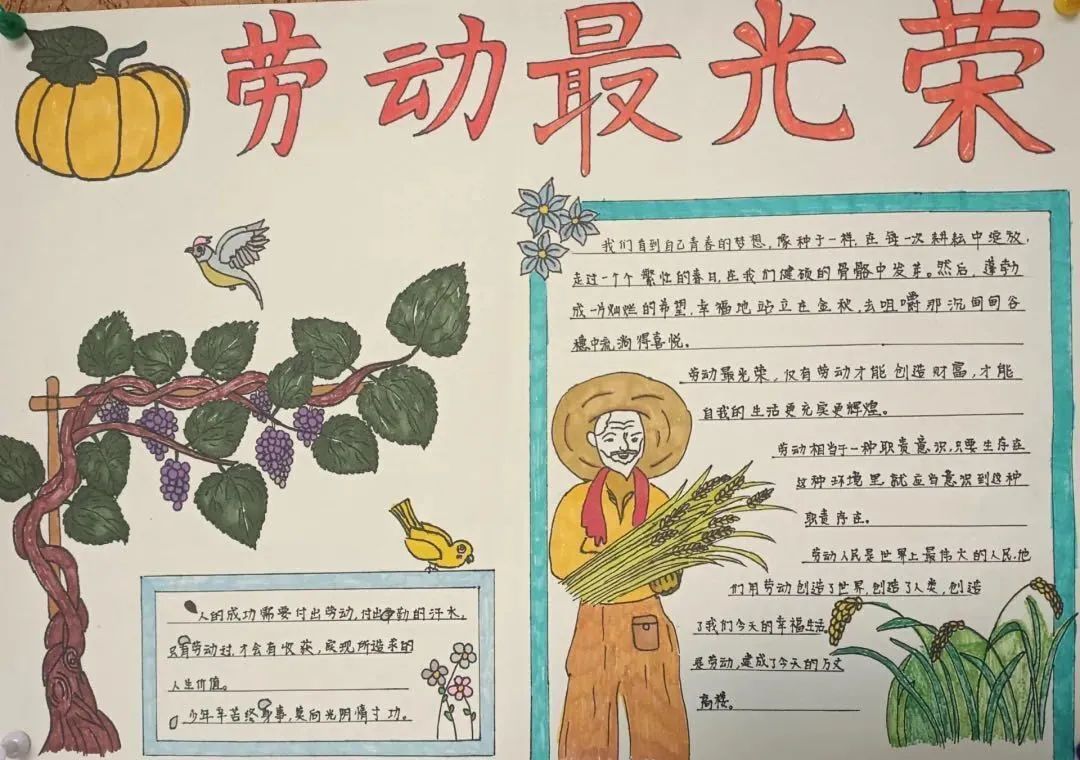 劳动最光荣
我们直到自己青春的梦想,像种子一样,在每一次耕耘中绽放,
走过一个个繁忙的春日,在我们健硕的骨骼中发芽。然后,蓬勃
成一片灿烂的希望,幸福地站立在金秋,去咀嚼那沉甸甸谷
穗中流淌得喜悦。
劳动最光荣,仅有劳动才能创造财富,才能
自我的生活更充实更辉煌。
劳动相当于一种职责意识,只要生存在
这种环境里就应当意识到这种
职责存在。
劳动人民是世界上最伟大的人民,他
们用劳动创造了世界,创造了人类,创造
了我们今天的幸福生活。
是劳动,建成了今天的万丈
高楼。
人的成功需要付出劳动,付出勤的汗水,
只有劳动过,才会有收获,实现所追求的
人生价值。
少年辛苦终事,莫向光阴惰寸功。